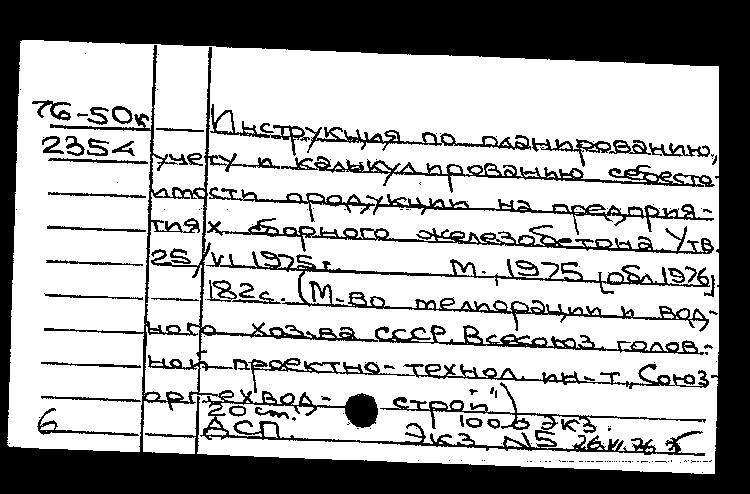 76-50к
2354
Инструкция по планированию,
учету и калькулированию себесто-
имости продукции на предприя-
тиях сборного железобетона. Утв.
25/VI 1975г. М., 1975 [обл. 1976]
182с. (М-во мелиорации и вод-
ного хоз-ва СССР. Всесоюз. голов.-
ной проектно-технол. ин-т. „Союз-
оргтехвод- строй")
20 см. 1000 экз.
6 ДСП. Экз. №5 26.VI.76